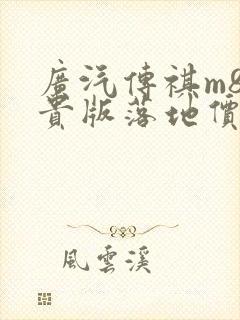 廣汽傳祺m8
貴版落地價
風雲溪